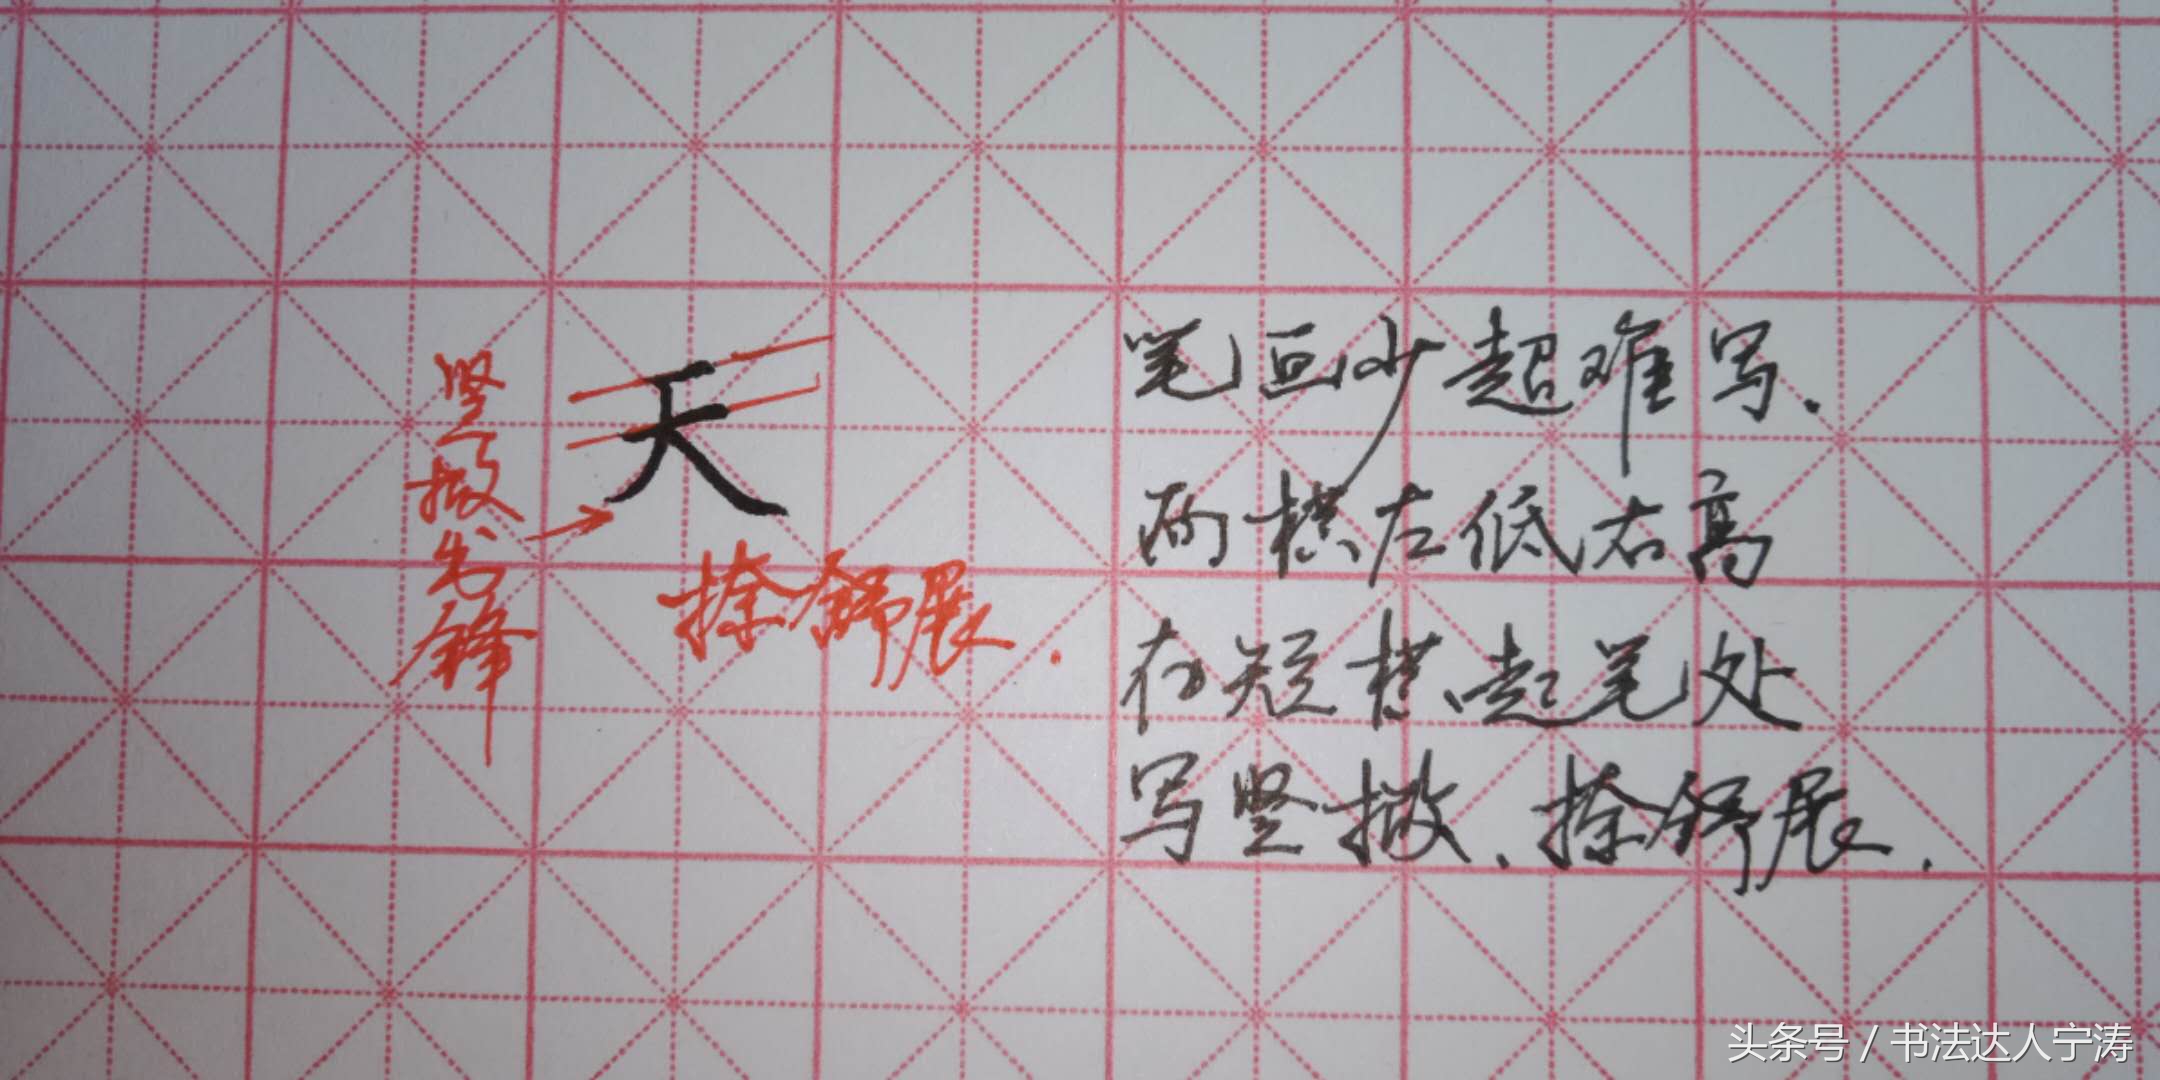 竖撇出锋
天
捺舒展.
笔画少超难写.
两横左低右高
在短横起笔处
写竖撇.捺舒展.
头条号 / 书法达人宁涛